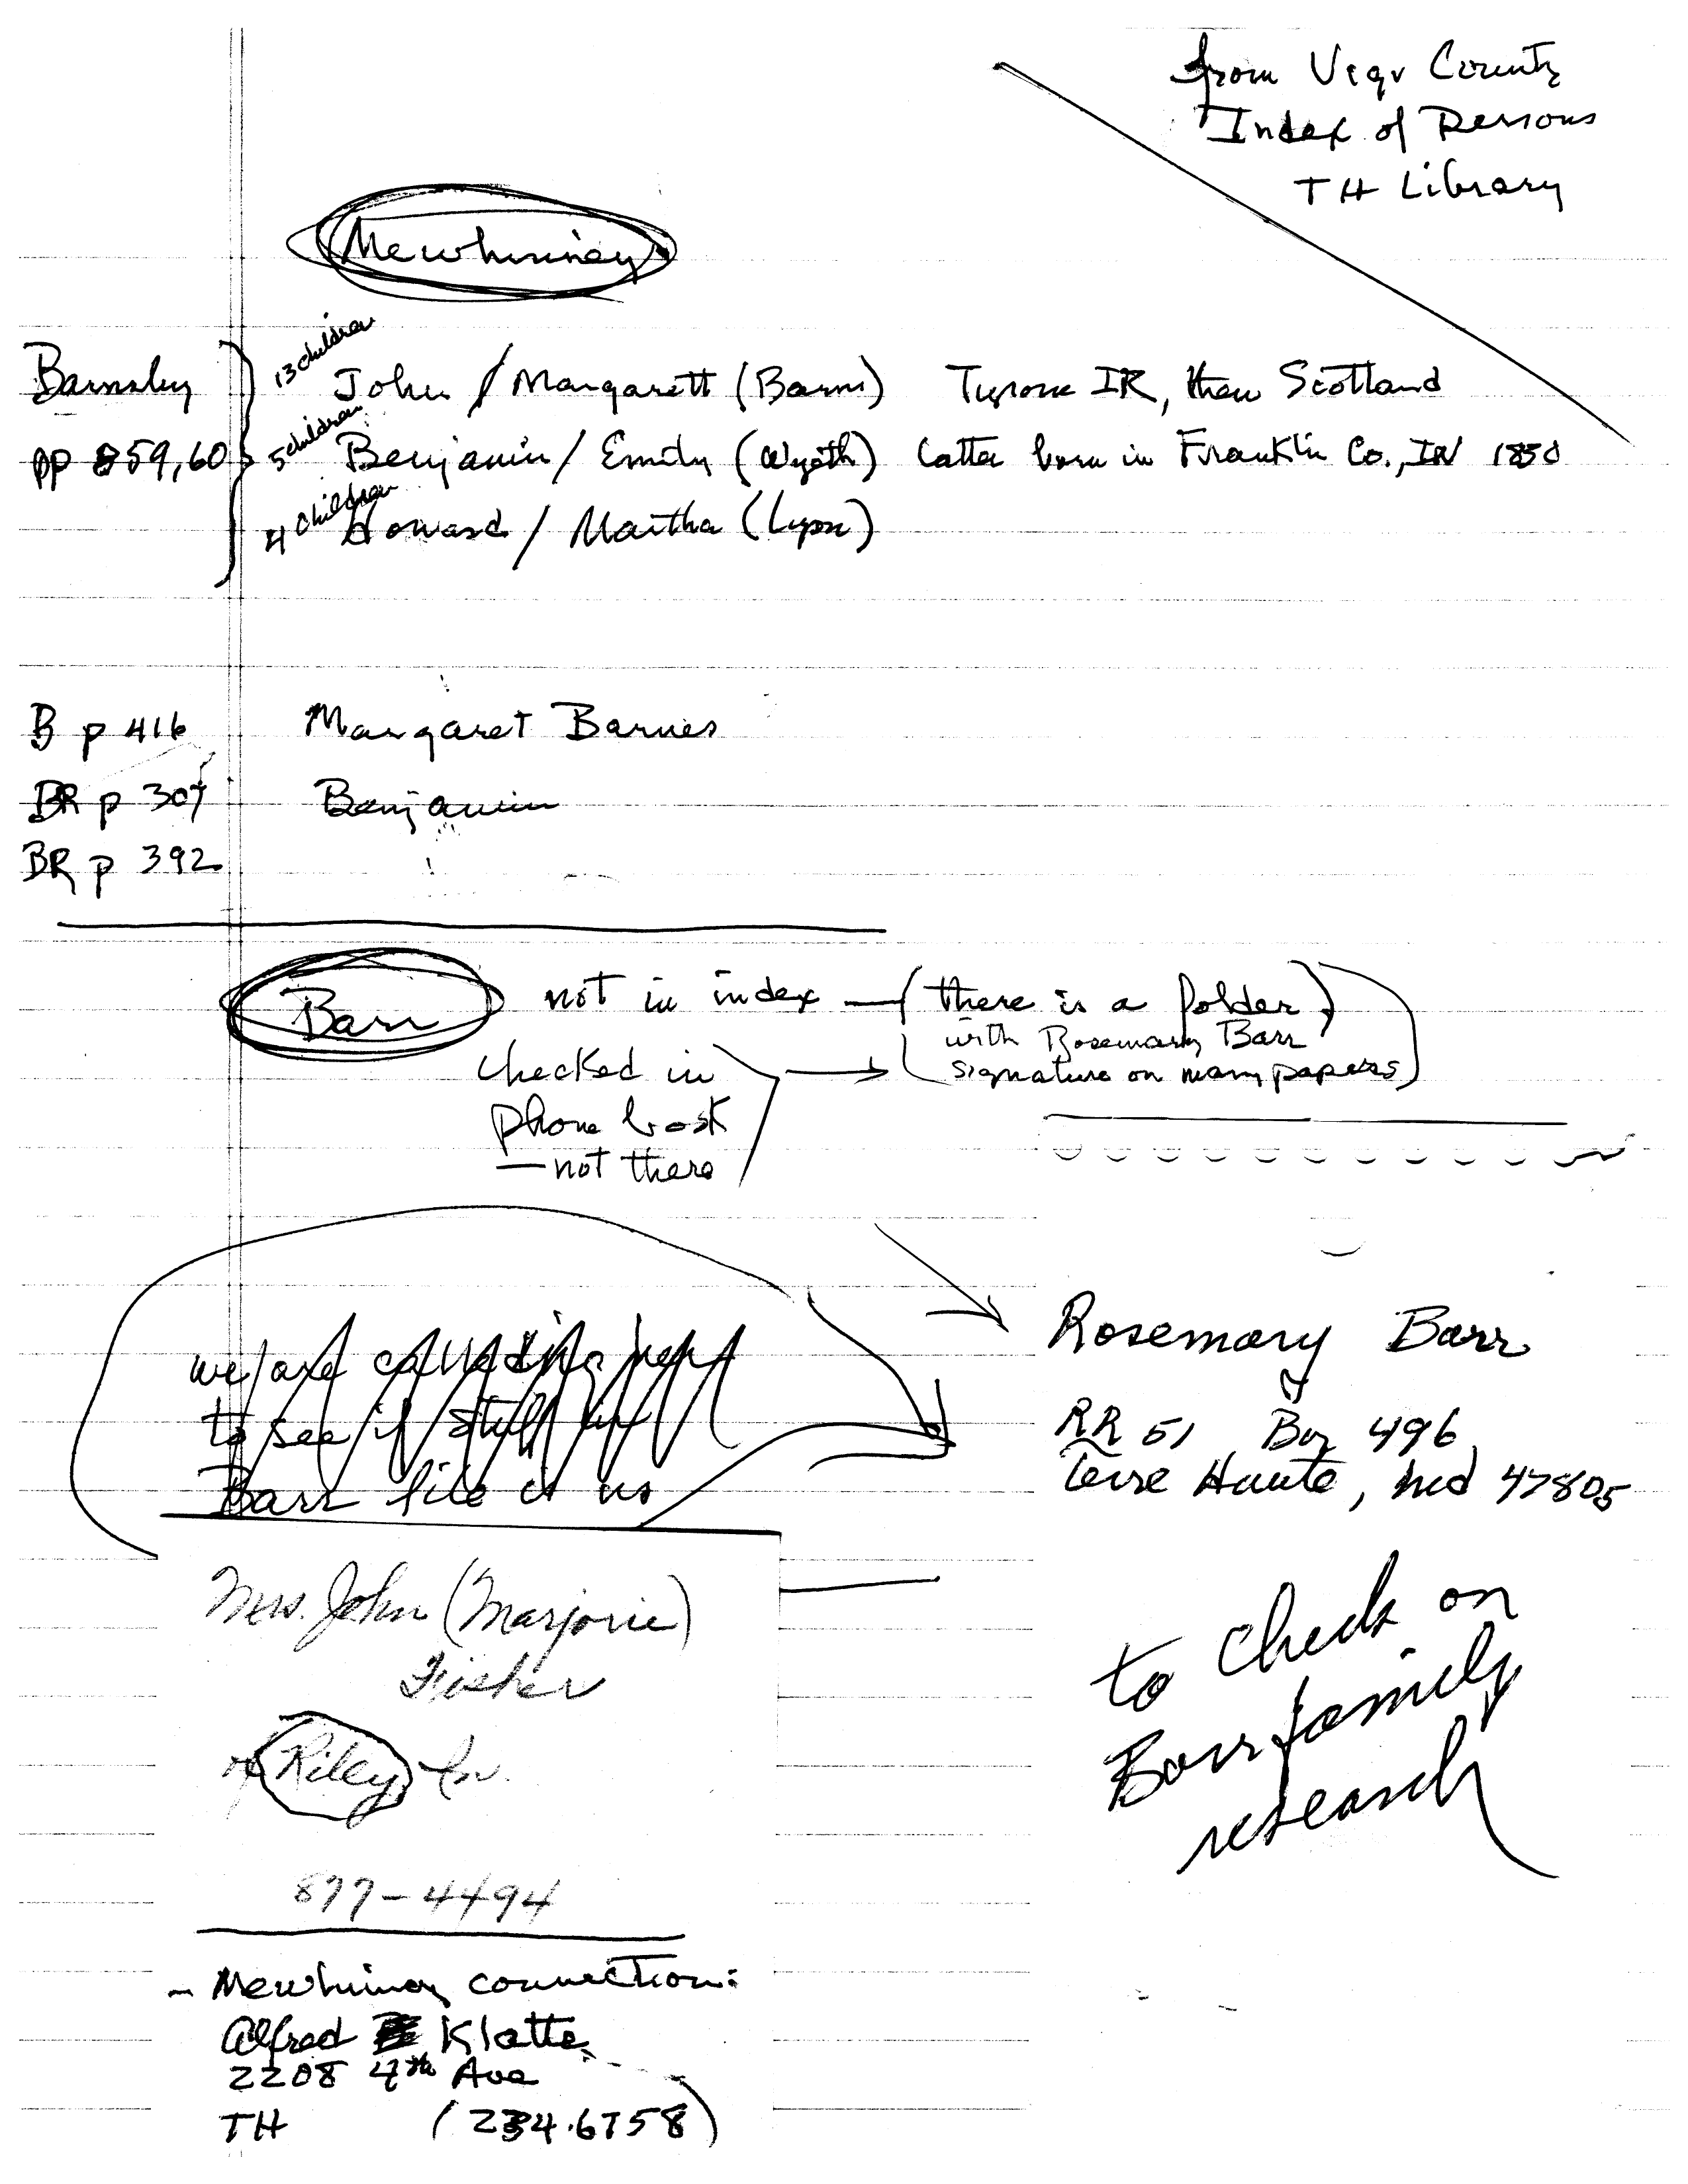 from Vigo County
Index of Persons
TH Library
Mewhinney
Barnsley
pp 859,60
13 children John / Margarett (Barns) Tyrone IR, then Scotland
5 children Benjamin / Emily (Wyeth) latter born in Franklin Co., IN 1850
4 children Howard / Martha (Lyon)
B p 416 Margaret Barnes
BR p 307 Benjamin
BR p 392
Barr not in index — (there is a folder)
with Rosemary Barr
signature on many papers)
checked in
phone book
— not there
we are
to see if still
Barr file
Rosemary Barr
RR 51 Box 496
Terre Haute, Ind 47805
to check on
Barr family
research
Mrs. John (Marjorie)
Fisher
of Riley In.
877-4494
- Mewhinney connection:
Alfred Klatte
2208 4th Ave
TH (234.6758)